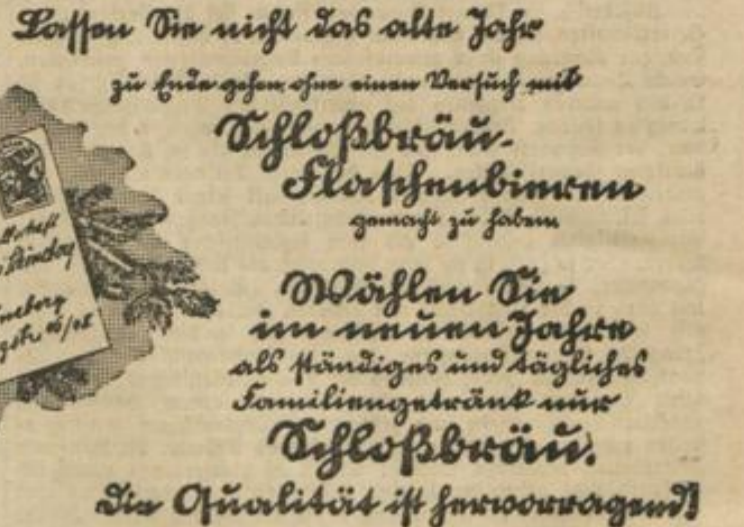 Lassen Sie nicht das alte Jahr
zu Ende gehen, ohne einen Versuch mit
Schloßbräu-
Flaschenbieren
gemacht zu haben.
Wählen Sie
im neuen Jahre
als ständiges und tägliches
Familiengetränk nur
Schloßbräu.
Die Qualität ist hervorragend!